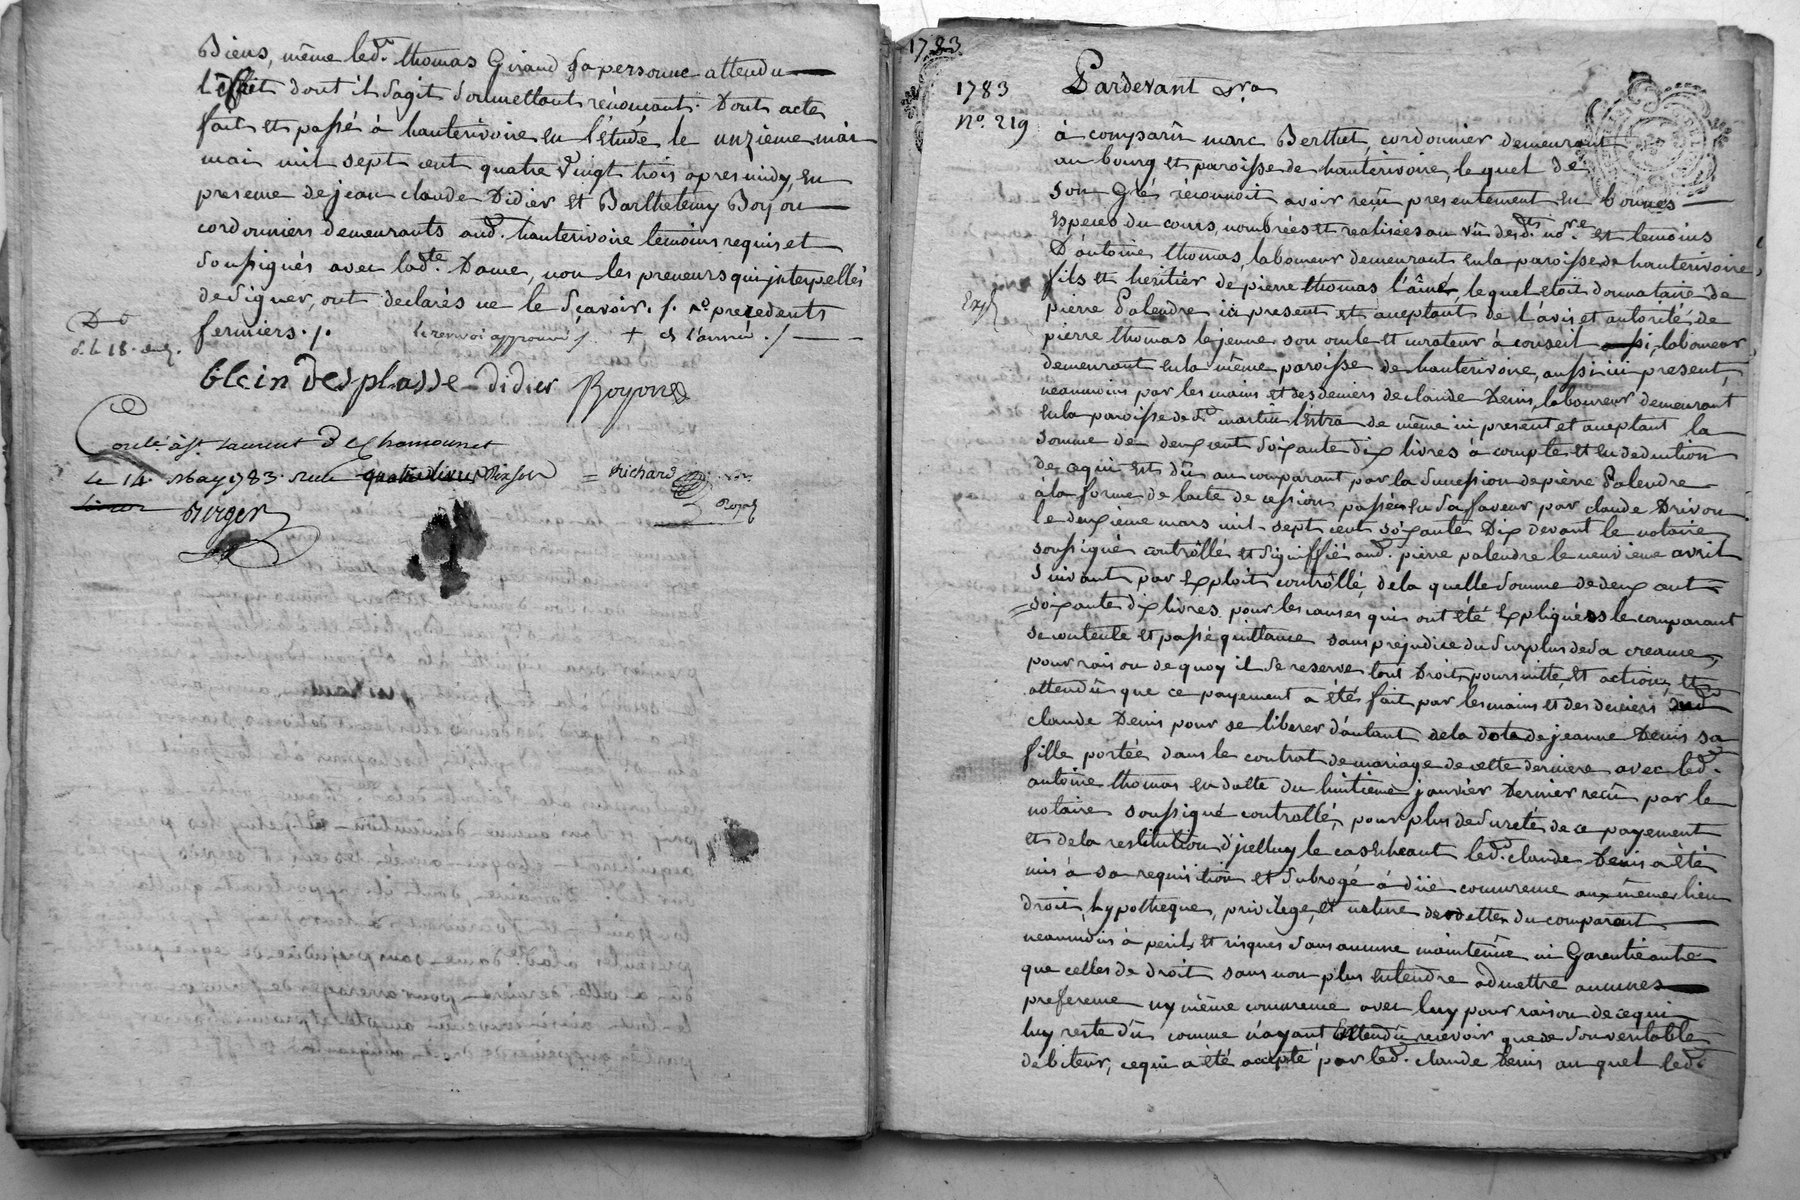 Biens, même led. thomas Giraud sa personne attendu
l'effet dont il sagit soumettant rénoncant. Dont acte
fait et passé à hauterivoire en l'étude le unzieme mai
mai mil sept cent quatre vingt trois apres midy, en
presence de jean claude Didier et Barthelemy Boyon
cordonniers demeurants aud. hauterivoire temoins requis et
soussignés avec lad.te Dame, non les preneurs qui jnterpellés
de signer, ont declarés ne le sçavoir. /. precedents
fermiers ./. le renvoi approuvé /. + et l'année ./
D
Glein Desplasse Didier Boyon
Conlé à St. Laurent De Chamousset
le 14. May 1783. recu quatre livres = Richard
Berger
1783
1783
N.o 219
Pardevant
à comparû marc Berthet, cordonnier demeurant
au bourg et paroisse de hauterivoire, lequel de
son gré réconnoit avoir reçu presentement en bonnes
Especes du cours, nombrées et realisées au vû desd.ts no.re et temoins
D'antoine thomas, laboureur demeurant en la paroisse de hauterivoire,
fils et heritier de pierre thomas l'âiné, lequel etoit donnataire de
Exp
pierre Palendre ici present et aceptant de l'avis et autorité de
pierre thomas le jeune son oncle et curateur à conseil, laboureur
demeurant en la même paroisse de hauterivoire, aussi ici present,
néanmoins par les mains et des deniers de claude Denis, laboureur demeurant
en la paroisse de St. martin Lestra de même ici present et aceptant la
somme de deux cent soixante dix livres à compte et en deduction
de ce qui est dû au comparant par la succession de pierre Palendre
à la forme de l'acte de cession passée en sa faveur par claude Drivon
le deuxieme mars mil sept cent soixante Dix devant le notaire
soussigné controllé et signiffié aud. pierre palendre le neuvieme avril
suivant par Exploit controllé, de la quelle somme de deux cent
soixante dix livres pour les causes qui ont été Expliquées le comparant
se contente et passe quittance sans prejudice du surplus de sa creance,
pour raison de quoy il se reserve tout Droit, poursuitte, et action, et
attendû que ce payement a été fait par les mains et des deniers dud.
claude Denis pour se liberer d'autant de la dote de jeanne Denis sa
fille portée dans le contrat de mariage de cette derniere avec led.
antoine thomas en datte du huitieme janvier Dernier reçu par le
notaire soussigné controllé, pour plus de sureté de ce payement
et de la restitution d'jcelluy le cas Echeant led. claude Denis a été
mis à sa requisition et subrogé à düe concurence aux mêmes lieu
droit, hypotheque, privilege, et nature de dette du comparant
neanmoins à perils et risques sans aucune maintenüe ni Garentie autre
que celles de droit sans non plus entendre admettre aucunes
preference ny même concurence avec luy pour raison de ce qui
luy reste dû comme n'ayant Entendû recevoir que de son veritable
débiteur, ce qui a été accepté par led. claude Denis au quel led.